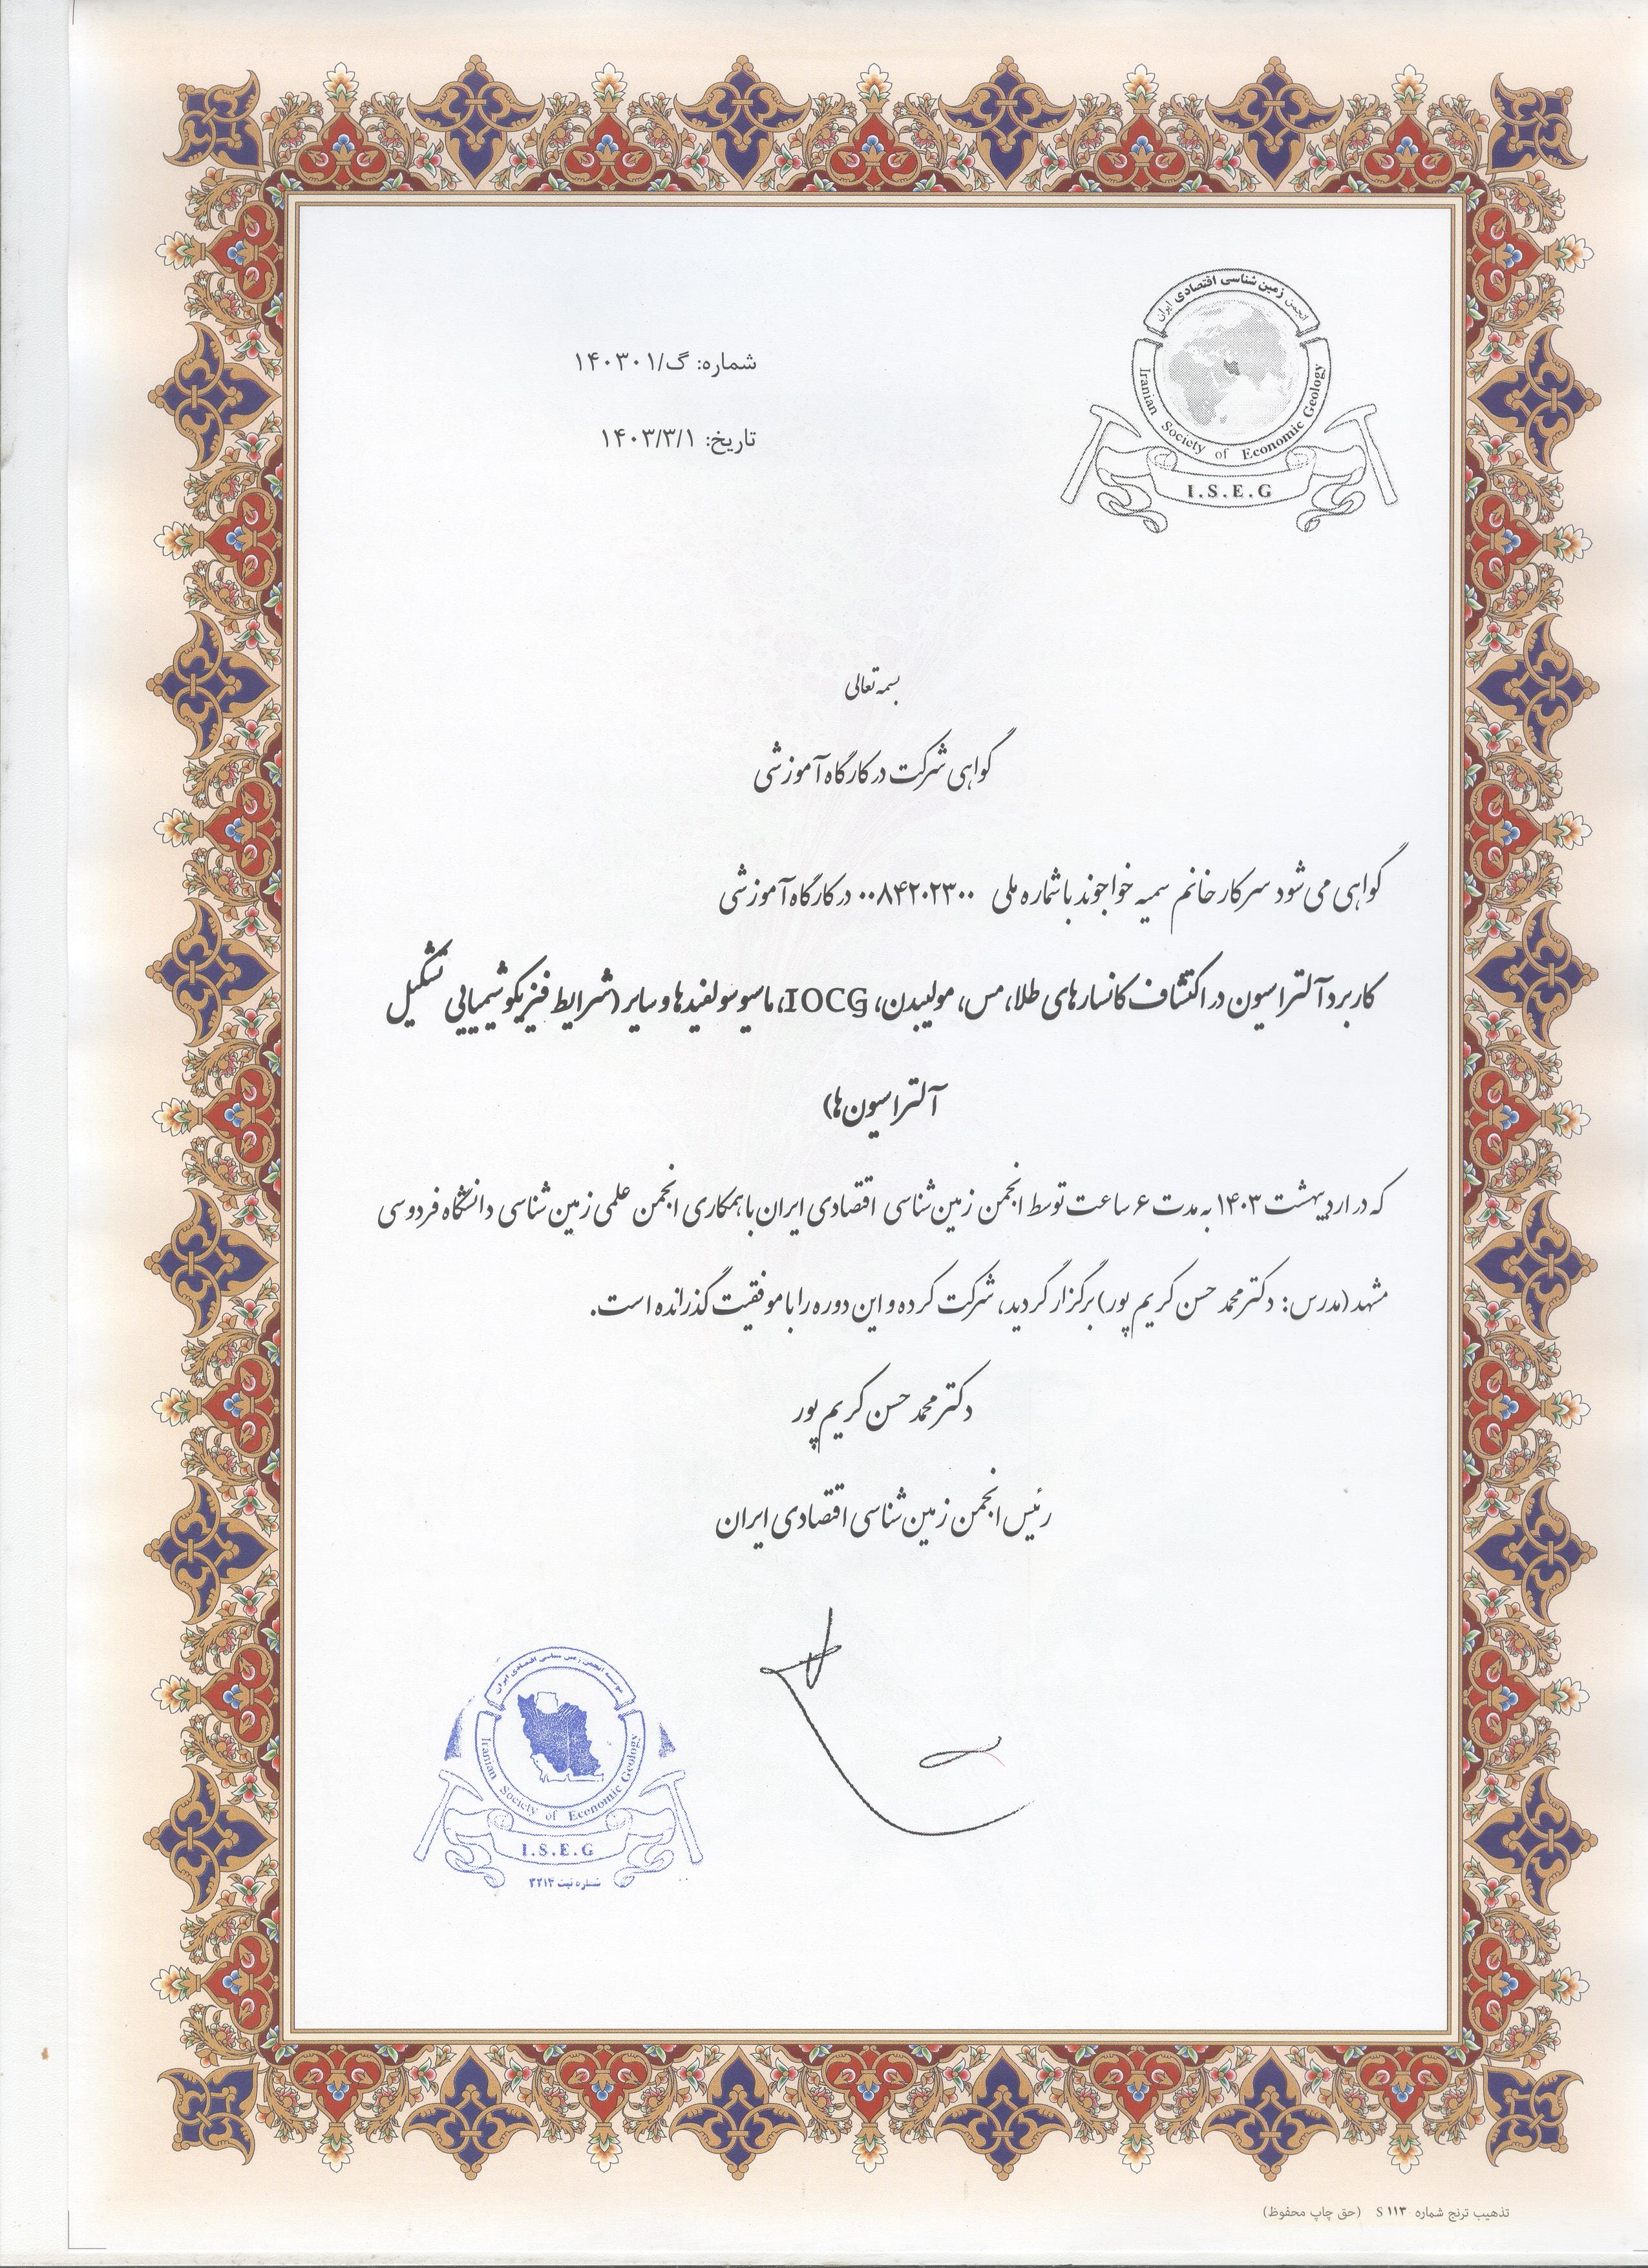 انجمن زمین شناسی اقتصادی ایران
Iranian Society of Economic Geology
I.S.E.G
شماره: گ/۱۴۰۳۰۱
تاریخ: ۱۴۰۳/۳/۱
بسمه تعالی
گواهی شرکت در کارگاه آموزشی
گواهی می شود سرکار خانم سمیه خواجوند با شماره ملی ۰۰۸۴۲۰۲۳۰۰ در کارگاه آموزشی
کاربرد آلتراسیون در اکتشاف کانسارهای طلا، مس، مولیبدن، IOCG، ماسیو سولفیدها و سایر (شرایط فیزیکوشیمیایی تشکیل
آلتراسیون ها)
که در اردیبهشت ۱۴۰۳ به مدت ۶ ساعت توسط انجمن زمین شناسی اقتصادی ایران با همکاری انجمن علمی زمین شناسی دانشگاه فردوسی
مشهد (مدرس: دکتر محمد حسن کریم پور) برگزار گردید، شرکت کرده و این دوره را با موفقیت گذرانده است.
دکتر محمد حسن کریم پور
رئیس انجمن زمین شناسی اقتصادی ایران
موسسه انجمن زمین شناسی اقتصادی ایران
Iranian Society of Economic Geology
I.S.E.G
شماره ثبت ۳۲۱۴
تذهیب ترنج شماره S ۱۱۳ (حق چاپ محفوظ)